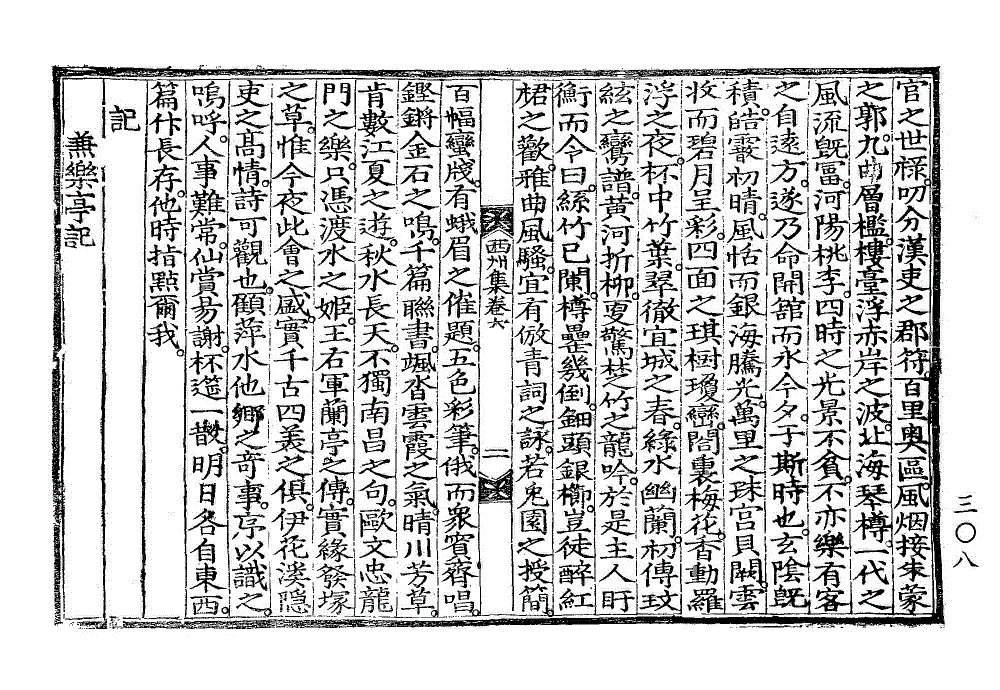 官之世祿叨分漢吏之郡符百里奧區風烟接朱蒙
之郭九曲層檻樓臺浮赤岸之波北海琴樽一代之
風流旣富河陽桃李四時之光景不貧不亦樂有客
之自遠方遂乃命開舘而永今夕于斯時也玄陰旣
積皓霰初晴風恬而銀海騰光萬里之珠宮貝闕雲
收而碧月呈彩四面之琪樹瓊巒閤裏梅花香動羅
浮之夜杯中竹葉翠徹宜城之春綠水幽蘭初傳玟
絃之鸞譜黃河折柳更驚楚竹之龍吟於是主人盱
衡而令曰絲竹已闌樽罍幾倒鈿頭銀櫛豈徒醉紅
裙之歡雅曲風騷宜有倣青詞之詠若兎園之授簡
西州集卷六
二
百幅蠻牋有蛾眉之催題五色彩筆俄而衆賓齊唱
鏗鏘金石之鳴千篇聯書颯沓雲霞之氣晴川芳草
肯數江夏之遊秋水長天不獨南昌之句歐文忠龍
門之樂只憑渡水之姬王右軍蘭亭之傳實緣發塚
之草惟今夜此會之盛實千古四美之俱伊花漤隱
吏之高情詩可觀也顧萍水他鄕之奇事序以識之
嗚呼人事難常仙賞易謝杯筵一散明日各自東西
篇什長存他時指點爾我
記
兼樂亭記
三〇八